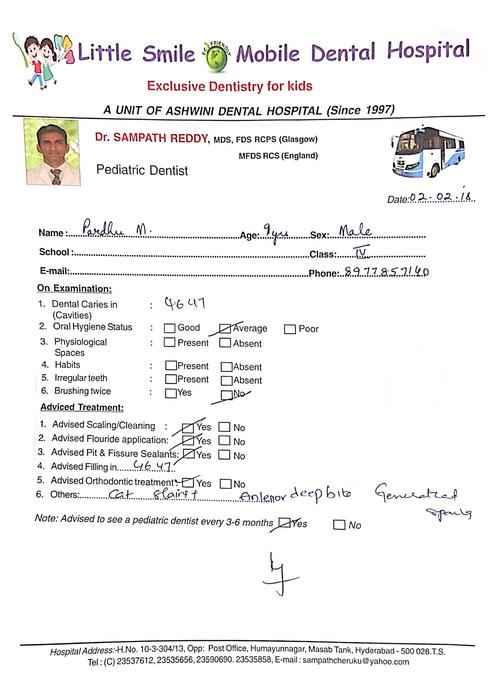 Little Smile Mobile Dental Hospital
Exclusive Dentistry for kids
A UNIT OF ASHWINI DENTAL HOSPITAL (Since 1997)
Dr. SAMPATH REDDY, MDS, FDS RCPS (Glasgow)
MFDS RCS (England)
Pediatric Dentist
Date: 02-02-18
Name: Pardhu M. Age: 9yrs Sex: Male
School: Class: IV
E-mail: Phone: 8977857140
On Examination:
1. Dental Caries in (Cavities) : 46 47
2. Oral Hygiene Status : Good Average Poor
3. Physiological Spaces : Present Absent
4. Habits : Present Absent
5. Irregular teeth : Present Absent
6. Brushing twice : Yes No
Adviced Treatment:
1. Advised Scaling/Cleaning : Yes No
2. Advised Flouride application: Yes No
3. Advised Pit & Fissure Sealants: Yes No
4. Advised Filling in 46 47
5. Advised Orthodontic treatment Yes No
6. Others: deep bite
Note: Advised to see a pediatric dentist every 3-6 months Yes No
Hospital Address:-H.No. 10-3-304/13, Opp: Post Office, Humayunnagar, Masab Tank, Hyderabad - 500 028.T.S.
Tel : (C) 23537612, 23535656, 23590690. 23535858, E-mail : sampathcheruku@yahoo.com